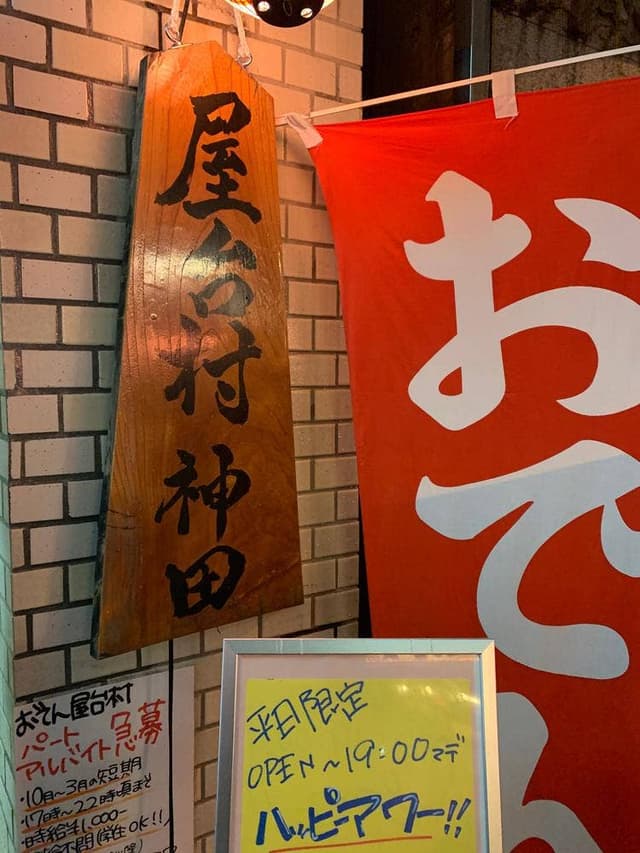 屋台村 神田
おでん
平日限定
OPEN〜19:00マデ
ハッピーアワー!!
おでん屋台村
パート
アルバイト急募
・10月〜3月の短期
・17時〜22時頃まで
・時給¥1,000-